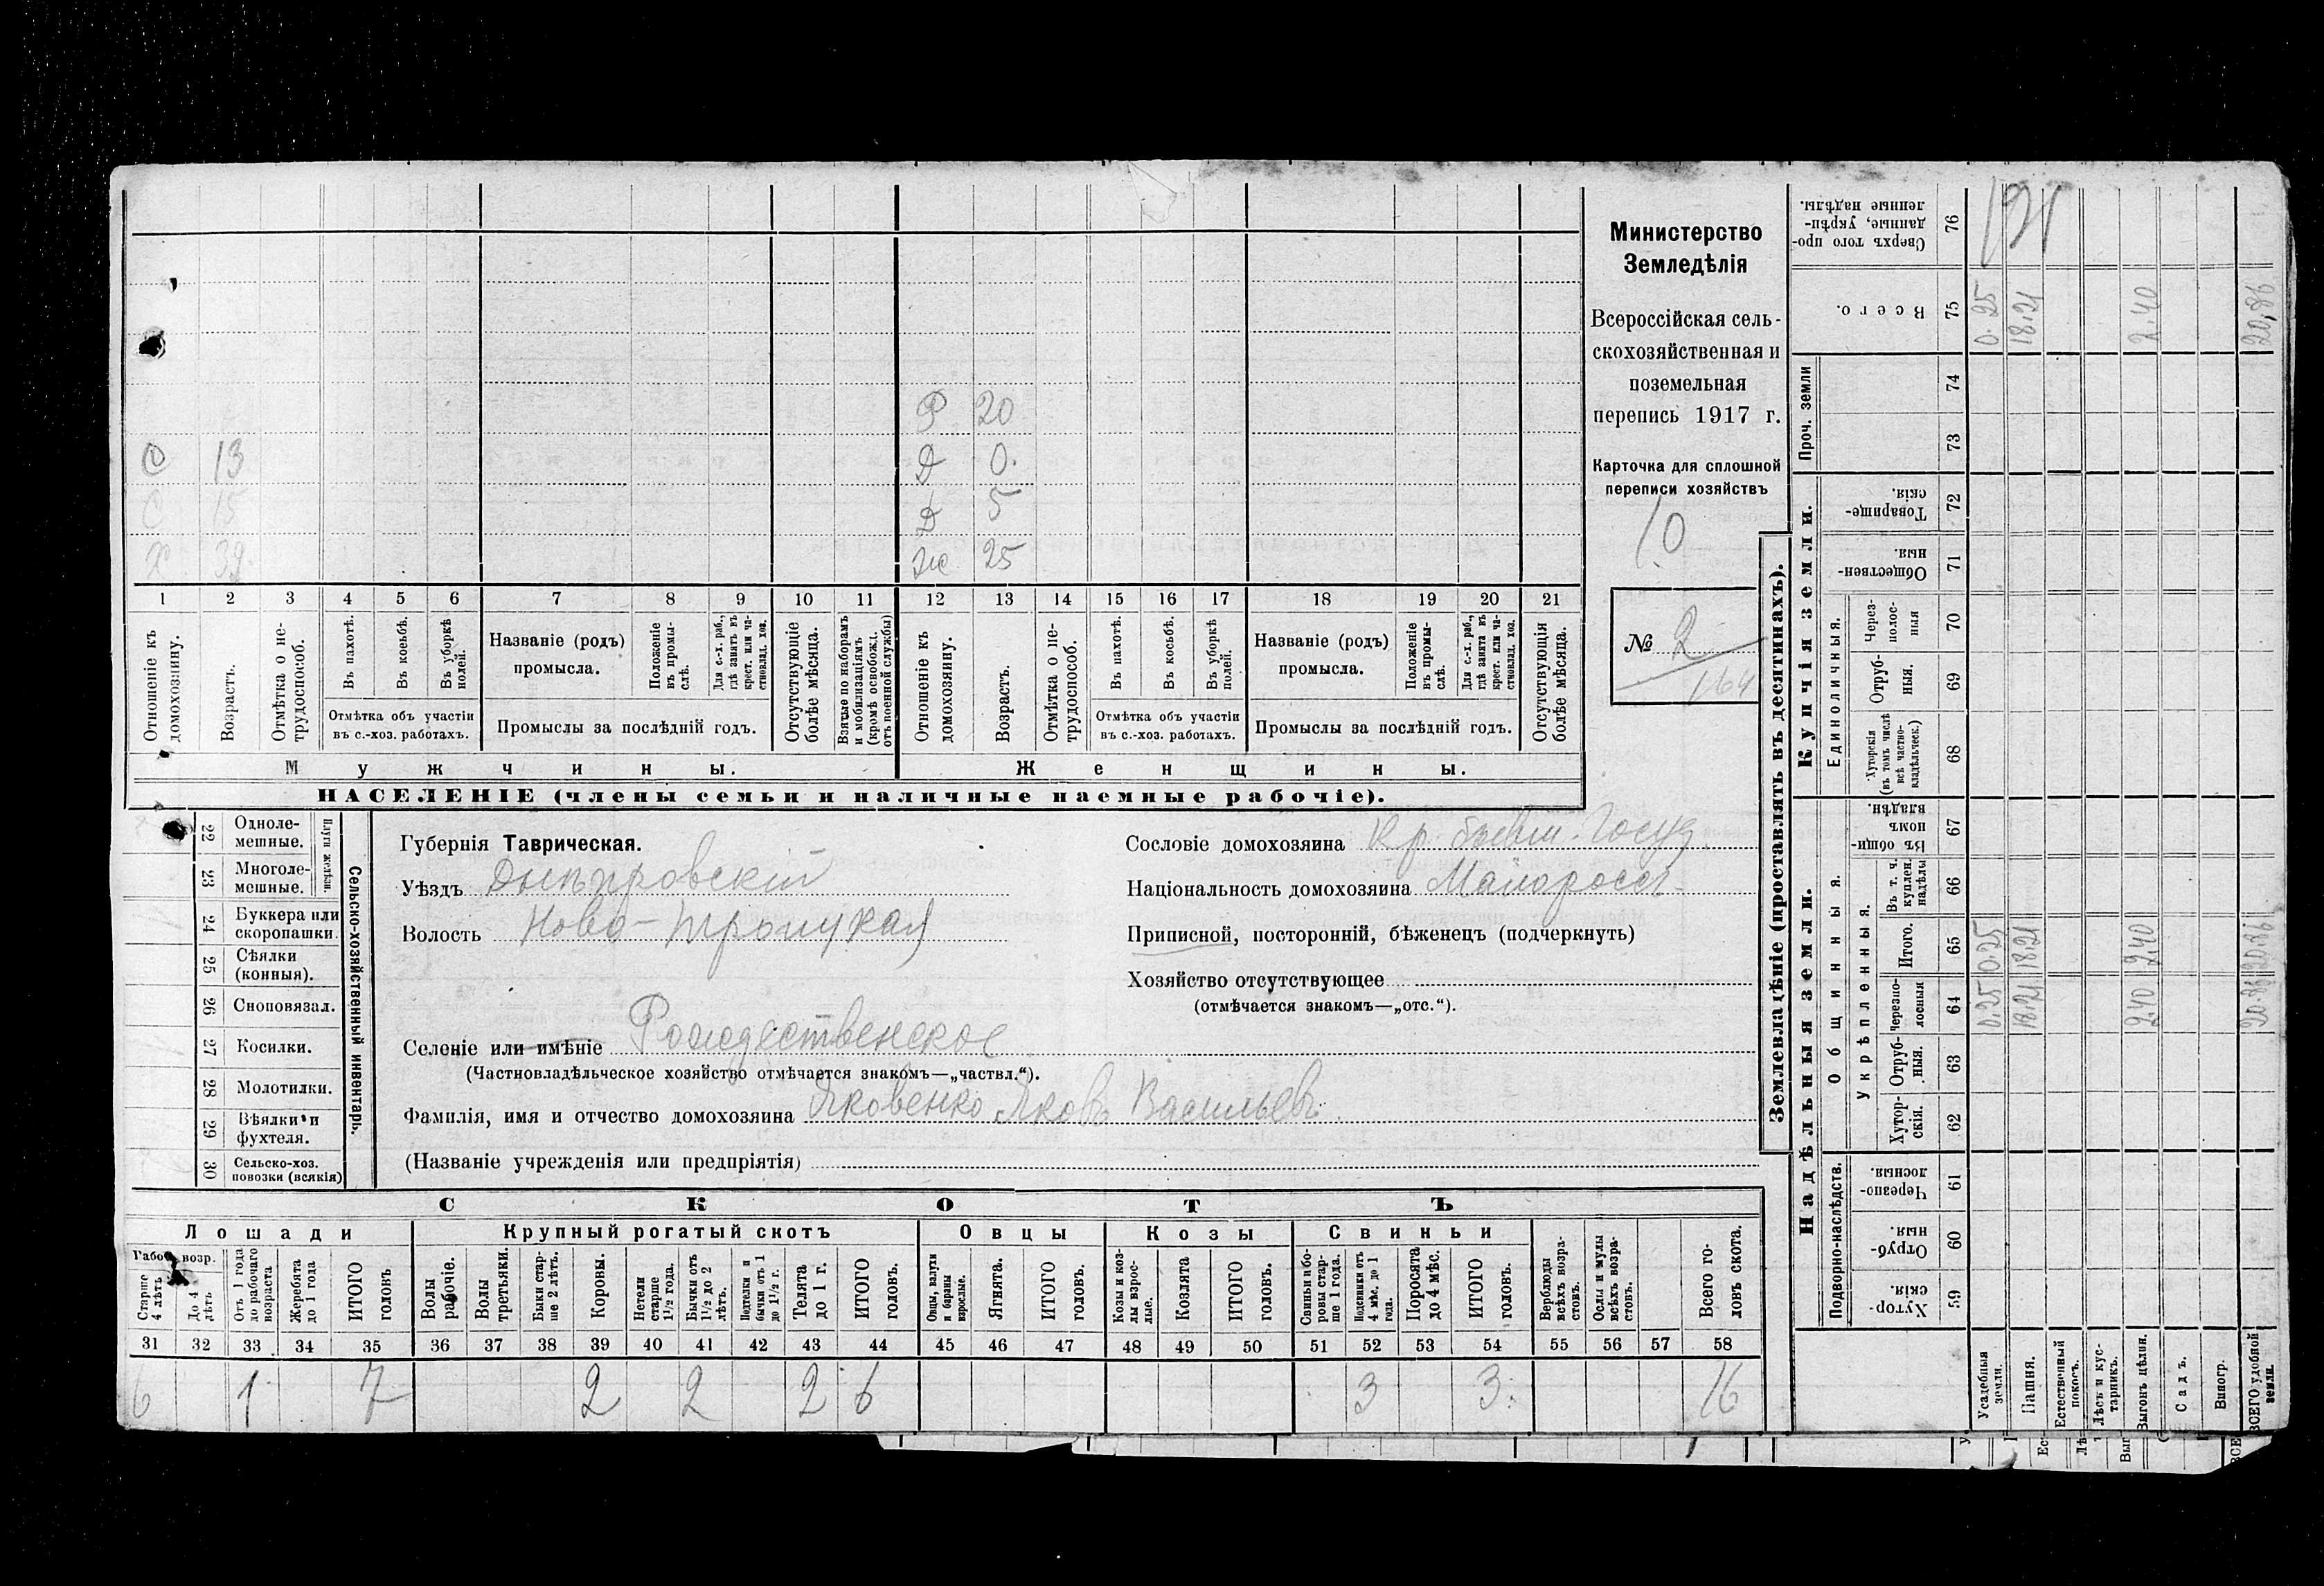 Министерство
Земледѣлія
Всероссійская сель-
скохозяйственная и
поземельная
перепись 1917 г.
Карточка для сплошной
переписи хозяйствъ
10
№ 2
164
Р 20
С 13 Д 0.
С 15 Д 5
Х 39. Ж 25
1 2 3 4 5 6 7 8 9 10 11 12 13 14 15 16 17 18 19 20 21
Отношеніе къ домохозяину.
Возрастъ.
Отмѣтка о не-трудоспособ.
Въ пахотѣ.
Въ косьбѣ.
Въ уборкѣ полей.
Отмѣтка объ участіи въ с.-хоз. работахъ.
Названіе (родъ) промысла.
Положеніе въ промы-слѣ.
Для с.-х. раб., гдѣ занятъ въ крест. или ча-стновлад. хоз.
Промыслы за послѣдній годъ.
Отсутствующіе болѣе мѣсяца.
Взятые по наборамъ и мобилизаціямъ (кромѣ освобожд. отъ военной службы)
Отношеніе къ домохозяину.
Возрастъ.
Отмѣтка о не-трудоспособ.
Въ пахотѣ.
Въ косьбѣ.
Въ уборкѣ полей.
Отмѣтка объ участіи въ с.-хоз. работахъ.
Названіе (родъ) промысла.
Положеніе въ промы-слѣ.
Для с.-х. раб., гдѣ занята въ крест. или ча-стновлад. хоз.
Промыслы за послѣдній годъ.
Отсутствующія болѣе мѣсяца.
Мужчины. Женщины.
НАСЕЛЕНІЕ (члены семьи и наличные наемные рабочіе).
Сельско-хозяйственный инвентарь.
Плуги желѣзн.
22 Одноле-мешные.
23 Многоле-мешные.
24 Буккера или скоропашки.
25 Сѣялки (конныя).
26 Сноповязал.
27 Косилки.
28 Молотилки.
29 Вѣялки и фухтеля.
30 Сельско-хоз. повозки (всякія)
Губернія Таврическая.
Уѣздъ Днѣпровскій
Волость Ново-Троицкая
Селеніе или имѣніе Рождественское
(Частновладѣльческое хозяйство отмѣчается знакомъ—„частвл.“).
Фамилія, имя и отчество домохозяина Яковенко Яковъ Васильевъ.
(Названіе учрежденія или предпріятія)
Сословіе домохозяина Кр. бывш. Госуд.
Національность домохозяина Малоросс.
Приписной, посторонній, бѣженецъ (подчеркнуть)
Хозяйство отсутствующее
(отмѣчается знакомъ—„отс.“).
СКОТЪ
Лошади Крупный рогатый скотъ Овцы Козы Свиньи
Рабоч. возр.
Старше 4 лѣтъ
До 4 лѣтъ
Отъ 1 года до рабочаго возраста
Жеребята до 1 года
ИТОГО головъ
Волы рабочіе.
Волы третьяки.
Быки стар-ше 2 лѣтъ.
Коровы.
Нетели старше 1½ года.
Бычки отъ 1½ до 2 лѣтъ.
Подтелки и бычки отъ 1 до 1½ г.
Телята до 1 г.
ИТОГО головъ.
Овцы, валухи и бараны взрослые.
Ягнята.
ИТОГО головъ.
Козы и коз-лы взрос-лые.
Козлята
ИТОГО головъ.
Свиньи и бо-ровы стар-ше 1 года.
Подсвинки отъ 4 мѣс. до 1 года.
Поросята до 4 мѣс.
ИТОГО головъ.
Верблюды всѣхъ возра-стовъ.
Ослы и мулы всѣхъ возра-стовъ.
Всего го-ловъ скота.
31 32 33 34 35 36 37 38 39 40 41 42 43 44 45 46 47 48 49 50 51 52 53 54 55 56 57 58
6 1 7 2 2 2 6 3 3. 16
Землевладѣніе (проставлять въ десятинахъ).
Надѣльныя земли. Купчія земли.
Подворно-наслѣдств.
Общинныя.
Укрѣпленныя.
Единоличныя.
Проч. земли
59 Хутор-скія.
60 Отруб-ныя.
61 Черезпо-лосныя.
62 Хутор-скія.
63 Отруб-ныя.
64 Черезпо-лосныя
65 Итого.
66 Въ т. ч. куплен. надѣлы
67 Въ общи-номъ владѣн.
68 Хуторскія (въ томъ числѣ всѣ частно-владѣльческ.)
69 Отруб-ныя.
70 Через-полос-ныя
71 Обществен-ныя.
72 Товарище-скія.
73
74
75 Всего.
76 Сверхъ того про-данные, укрѣп-ленные надѣлы.
Усадебныя земли. 0.25 0.25 0.25
Пашня. 18.21 18.21 18.21
Естественный покосъ.
Лѣсъ и кус-тарникъ.
Выгонъ цѣлин. 2.40 2.40 2.40
Садъ.
Виногр.
ВСЕГО удобной земли. 20.86 20.86 20.86